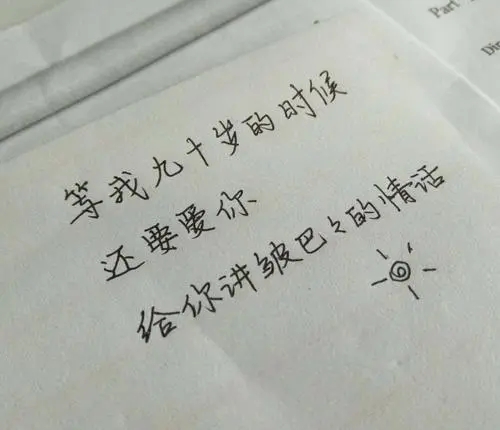 Part
Dir
等我九十岁的时候
还要爱你
给你讲皱巴々的情话